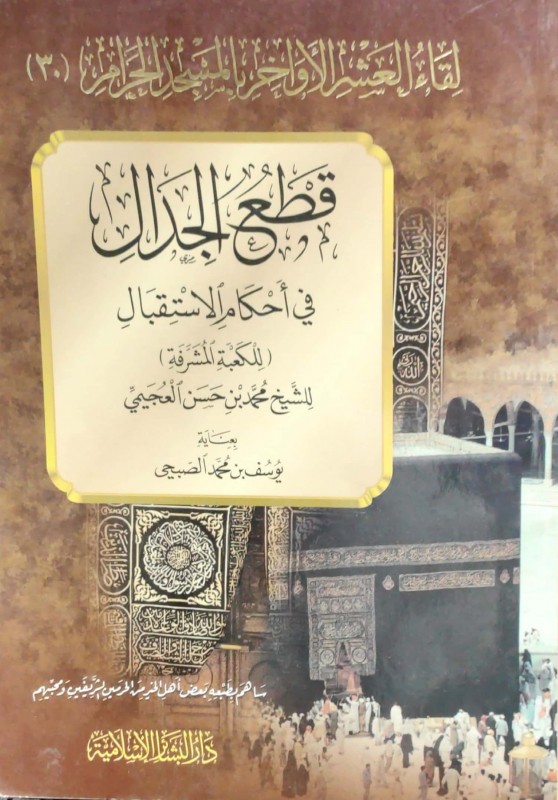 لِقَاءُ العَشْرِ الأَوَاخِرِ بِالْمَسْجِدِ الحَرَامِ (٣٠)
قَطْعُ الجِدَالِ
فِي أَحْكَامِ الِاسْتِقْبَالِ
(لِلْكَعْبَةِ الْمُشَرَّفَةِ)
لِلشَّيْخِ مُحَمَّدْ بْنِ حَسَن الْعُجَيْمِيِّ
بِعِنَايَة
يُوسُف بن مُحَمَّد الصُّبْحِي
سَاهَمَ بِطَبْعِهِ بَعْضُ أَهْلِ الخَيْرِ مِنَ الحَرَمَيْنِ الشَّرِيفَيْنِ وَمُحِبِّيهِم
دَارُ البَشَائِرِ الإِسْلَامِيَّة